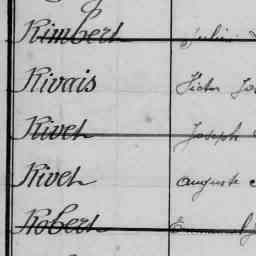 Rimbert Julien
Rivais Victor Jos
Rivet Joseph
Rivet auguste
Robert Emmanuel